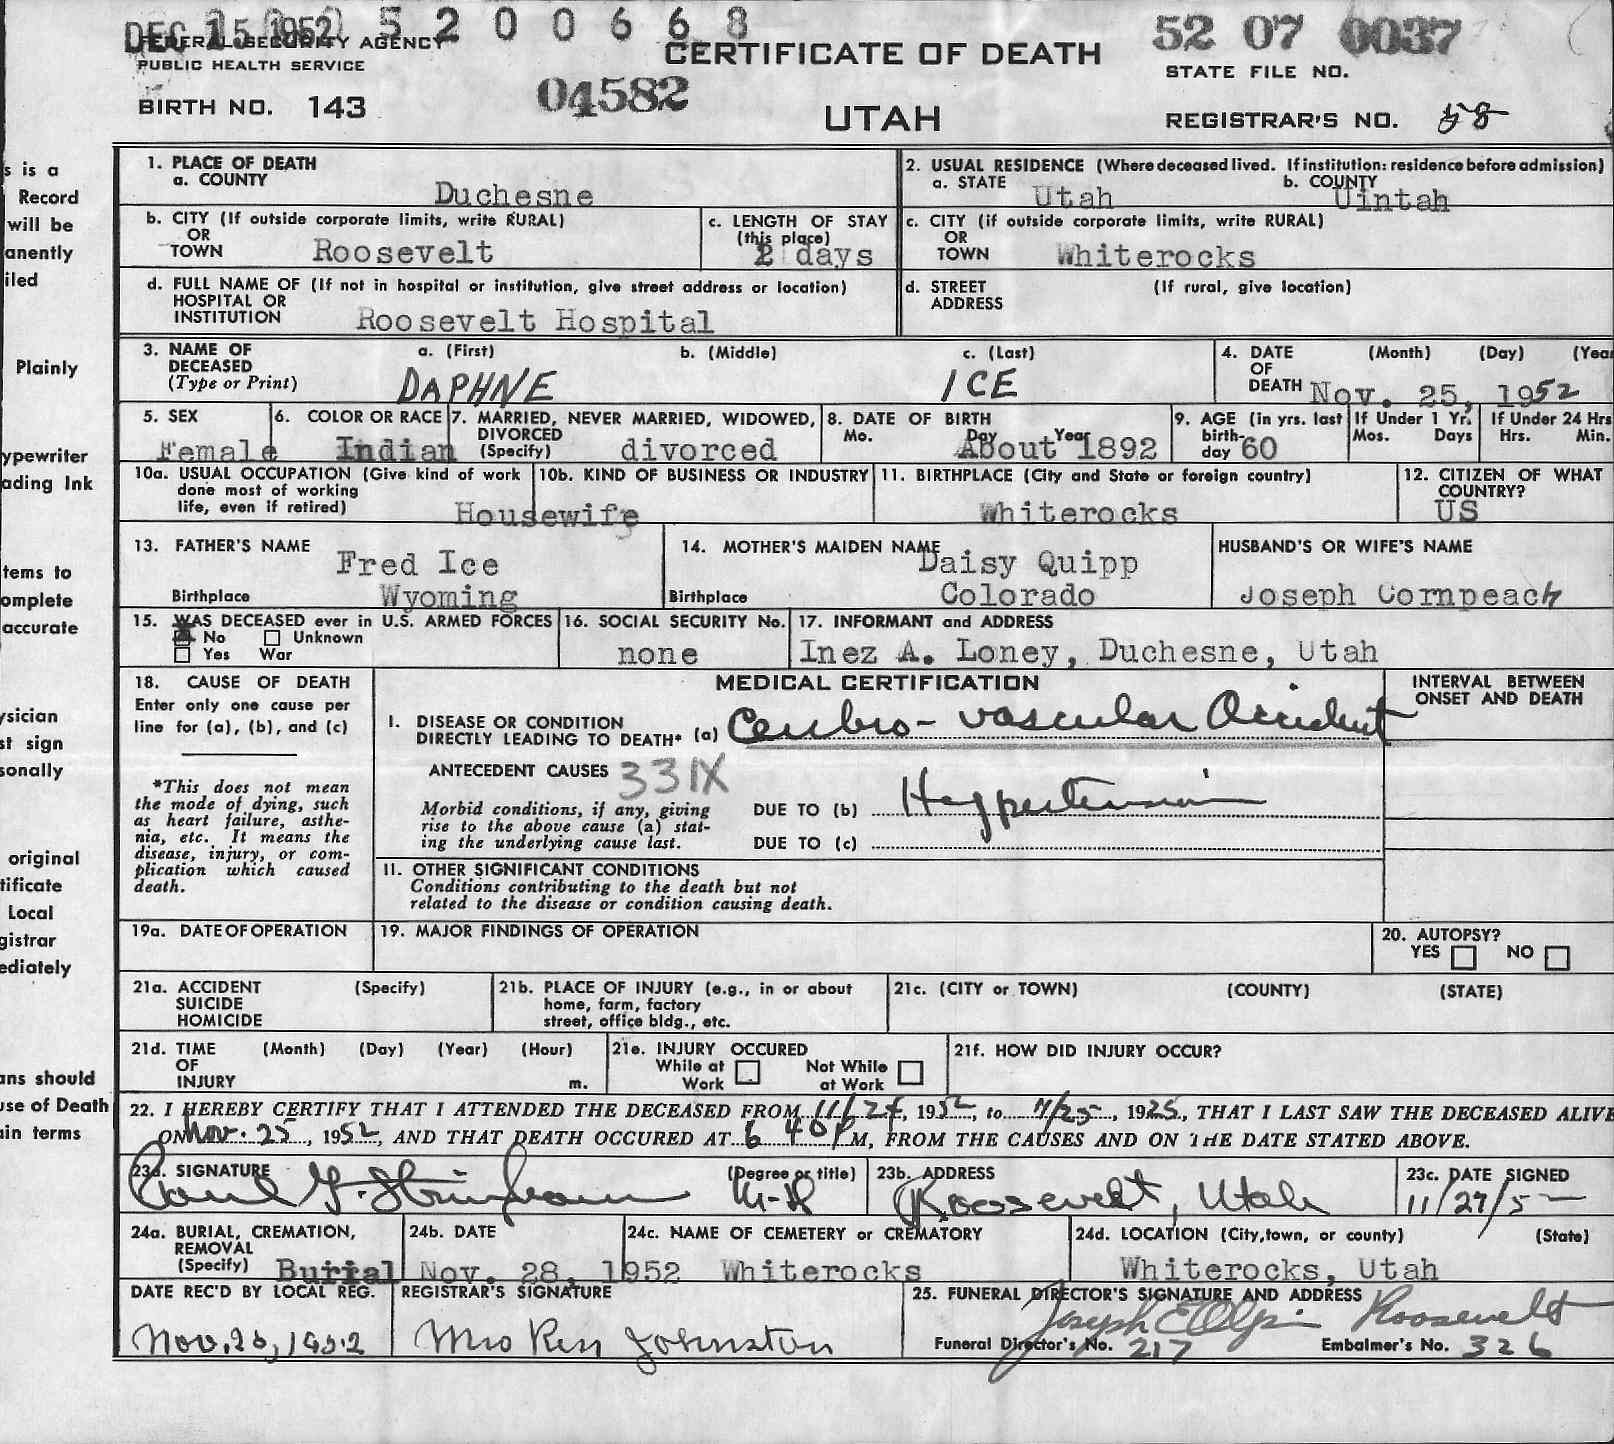 DEC 15 1952 5 2 0 0 6 6 8
FEDERAL SECURITY AGENCY
PUBLIC HEALTH SERVICE
CERTIFICATE OF DEATH
52 07 0037
STATE FILE NO.
BIRTH NO. 143
04582
UTAH
REGISTRAR'S NO. 58
s is a
Record
will be
anently
iled
Plainly
ypewriter
ading Ink
tems to
omplete
accurate
ysician
st sign
sonally
original
tificate
Local
gistrar
ediately
ans should
use of Death
ain terms
1. PLACE OF DEATH
a. COUNTY
Duchesne
2. USUAL RESIDENCE (Where deceased lived. If institution: residence before admission)
a. STATE Utah b. COUNTY Uintah
b. CITY (If outside corporate limits, write RURAL)
OR
TOWN Roosevelt
c. LENGTH OF STAY
(this place)
2 days
c. CITY (if outside corporate limits, write RURAL)
OR
TOWN Whiterocks
d. FULL NAME OF (If not in hospital or institution, give street address or location)
HOSPITAL OR
INSTITUTION Roosevelt Hospital
d. STREET (If rural, give location)
ADDRESS
3. NAME OF
DECEASED
(Type or Print)
a. (First) b. (Middle) c. (Last)
DAPHNE ICE
4. DATE (Month) (Day) (Year
OF
DEATH Nov. 25, 1952
5. SEX
Female
6. COLOR OR RACE
Indian
7. MARRIED, NEVER MARRIED, WIDOWED,
DIVORCED
(Specify) divorced
8. DATE OF BIRTH
Mo. Day Year
About 1892
9. AGE (in yrs. last
birth-
day 60
If Under 1 Yr.
Mos. Days
If Under 24 Hrs
Hrs. Min.
10a. USUAL OCCUPATION (Give kind of work
done most of working
life, even if retired) Housewife
10b. KIND OF BUSINESS OR INDUSTRY
11. BIRTHPLACE (City and State or foreign country)
Whiterocks
12. CITIZEN OF WHAT
COUNTRY?
US
13. FATHER'S NAME
Fred Ice
Birthplace Wyoming
14. MOTHER'S MAIDEN NAME
Daisy Quipp
Birthplace Colorado
HUSBAND'S OR WIFE'S NAME
Joseph Cornpeach
15. WAS DECEASED ever in U.S. ARMED FORCES
No Unknown
Yes War
16. SOCIAL SECURITY No.
none
17. INFORMANT and ADDRESS
Inez A. Loney, Duchesne, Utah
18. CAUSE OF DEATH
Enter only one cause per
line for (a), (b), and (c)
*This does not mean
the mode of dying, such
as heart failure, asthe-
nia, etc. It means the
disease, injury, or com-
plication which caused
death.
MEDICAL CERTIFICATION
INTERVAL BETWEEN
ONSET AND DEATH
I. DISEASE OR CONDITION
DIRECTLY LEADING TO DEATH* (a) Cerebro-vascular Accident
ANTECEDENT CAUSES 331X
Morbid conditions, if any, giving
rise to the above cause (a) stat-
ing the underlying cause last.
DUE TO (b) Hypertension
DUE TO (c)
11. OTHER SIGNIFICANT CONDITIONS
Conditions contributing to the death but not
related to the disease or condition causing death.
19a. DATE OF OPERATION
19. MAJOR FINDINGS OF OPERATION
20. AUTOPSY?
YES NO
21a. ACCIDENT (Specify)
SUICIDE
HOMICIDE
21b. PLACE OF INJURY (e.g., in or about
home, farm, factory
street, office bldg., etc.
21c. (CITY or TOWN) (COUNTY) (STATE)
21d. TIME (Month) (Day) (Year) (Hour)
OF
INJURY m.
21e. INJURY OCCURED
While at Not While
Work at Work
21f. HOW DID INJURY OCCUR?
22. I HEREBY CERTIFY THAT I ATTENDED THE DECEASED FROM 11/24, 1952, to 11/25, 1925, THAT I LAST SAW THE DECEASED ALIVE
ON Nov. 25, 1952, AND THAT DEATH OCCURED AT 6 40 PM, FROM THE CAUSES AND ON THE DATE STATED ABOVE.
23a. SIGNATURE (Degree or title)
Paul G. Stringham M-D
23b. ADDRESS
Roosevelt, Utah
23c. DATE SIGNED
11/27/52
24a. BURIAL, CREMATION,
REMOVAL
(Specify) Burial
24b. DATE
Nov. 28, 1952
24c. NAME OF CEMETERY or CREMATORY
Whiterocks
24d. LOCATION (City, town, or county) (State)
Whiterocks, Utah
DATE REC'D BY LOCAL REG.
Nov. 28, 1952
REGISTRAR'S SIGNATURE
Mrs Ken Johnston
25. FUNERAL DIRECTOR'S SIGNATURE AND ADDRESS
Joseph E Olpin Roosevelt
Funeral Director's No. 217 Embalmer's No. 326